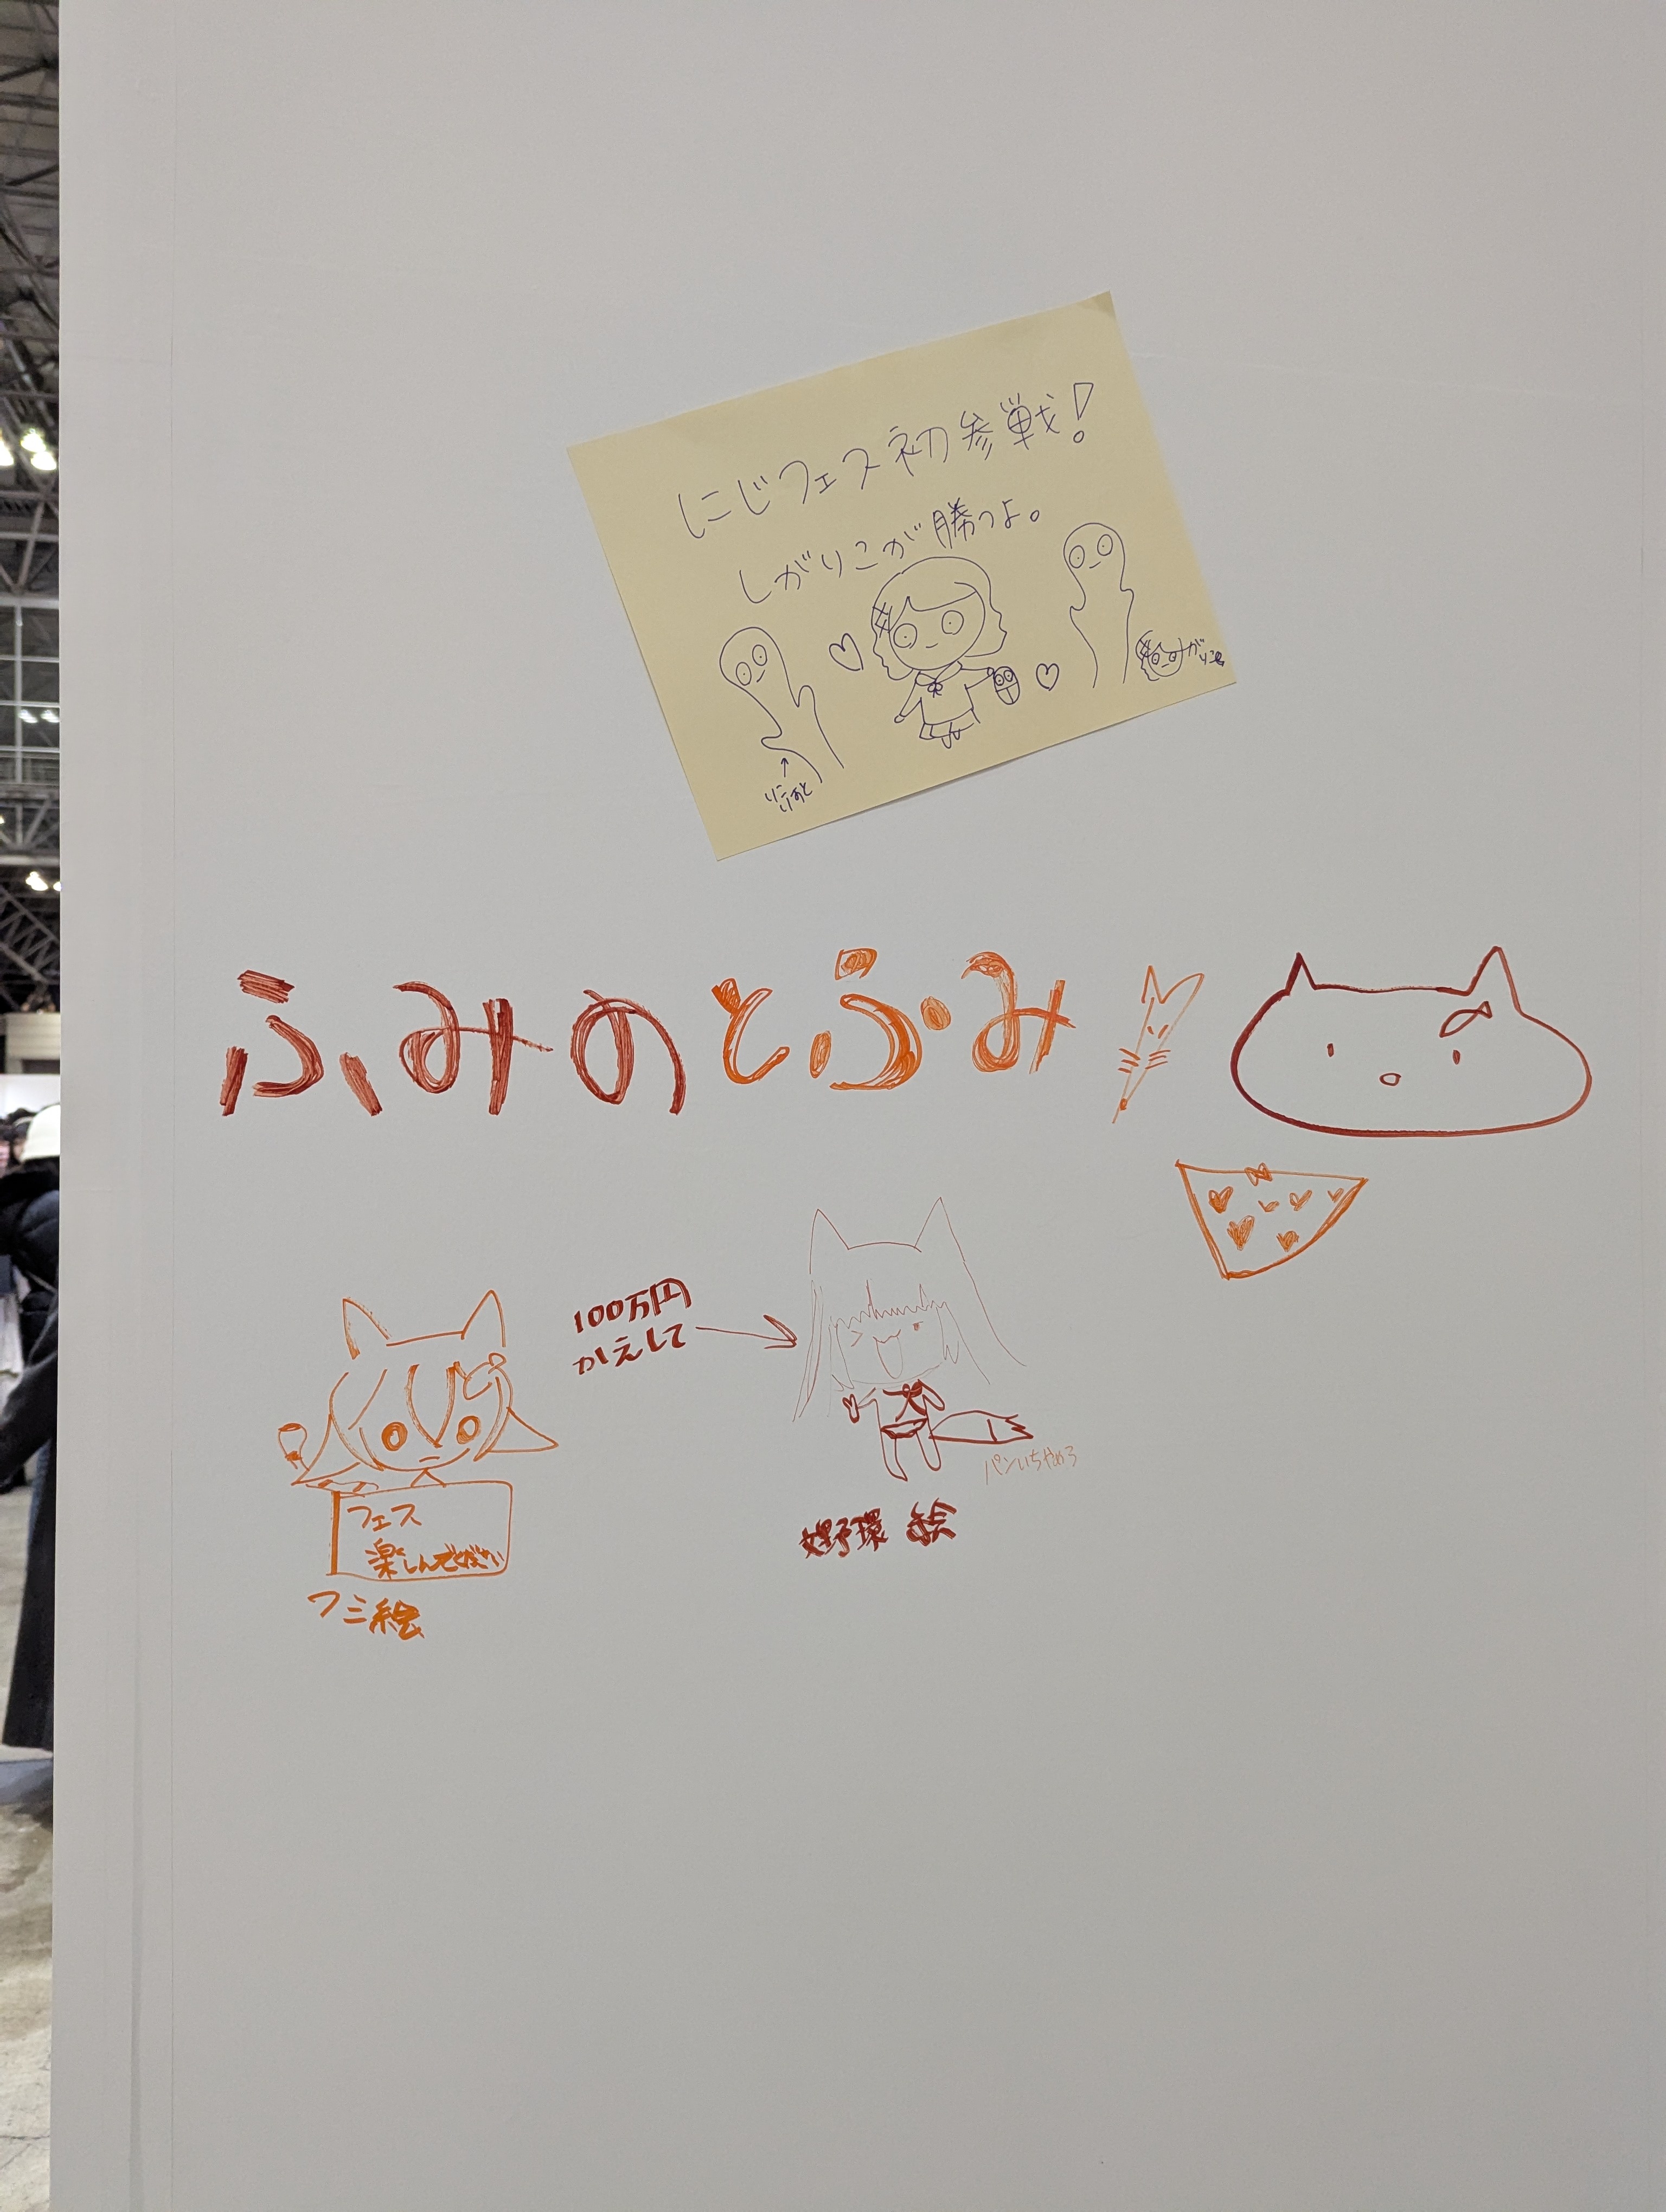 にじフェス初参戦!
しがりこが勝つよ。
りこ
りあと
がりこ
ふみのとふみ
100万円
かえして
フェス
楽しんでください
フミ絵
パンいちやめろ
野環 絵